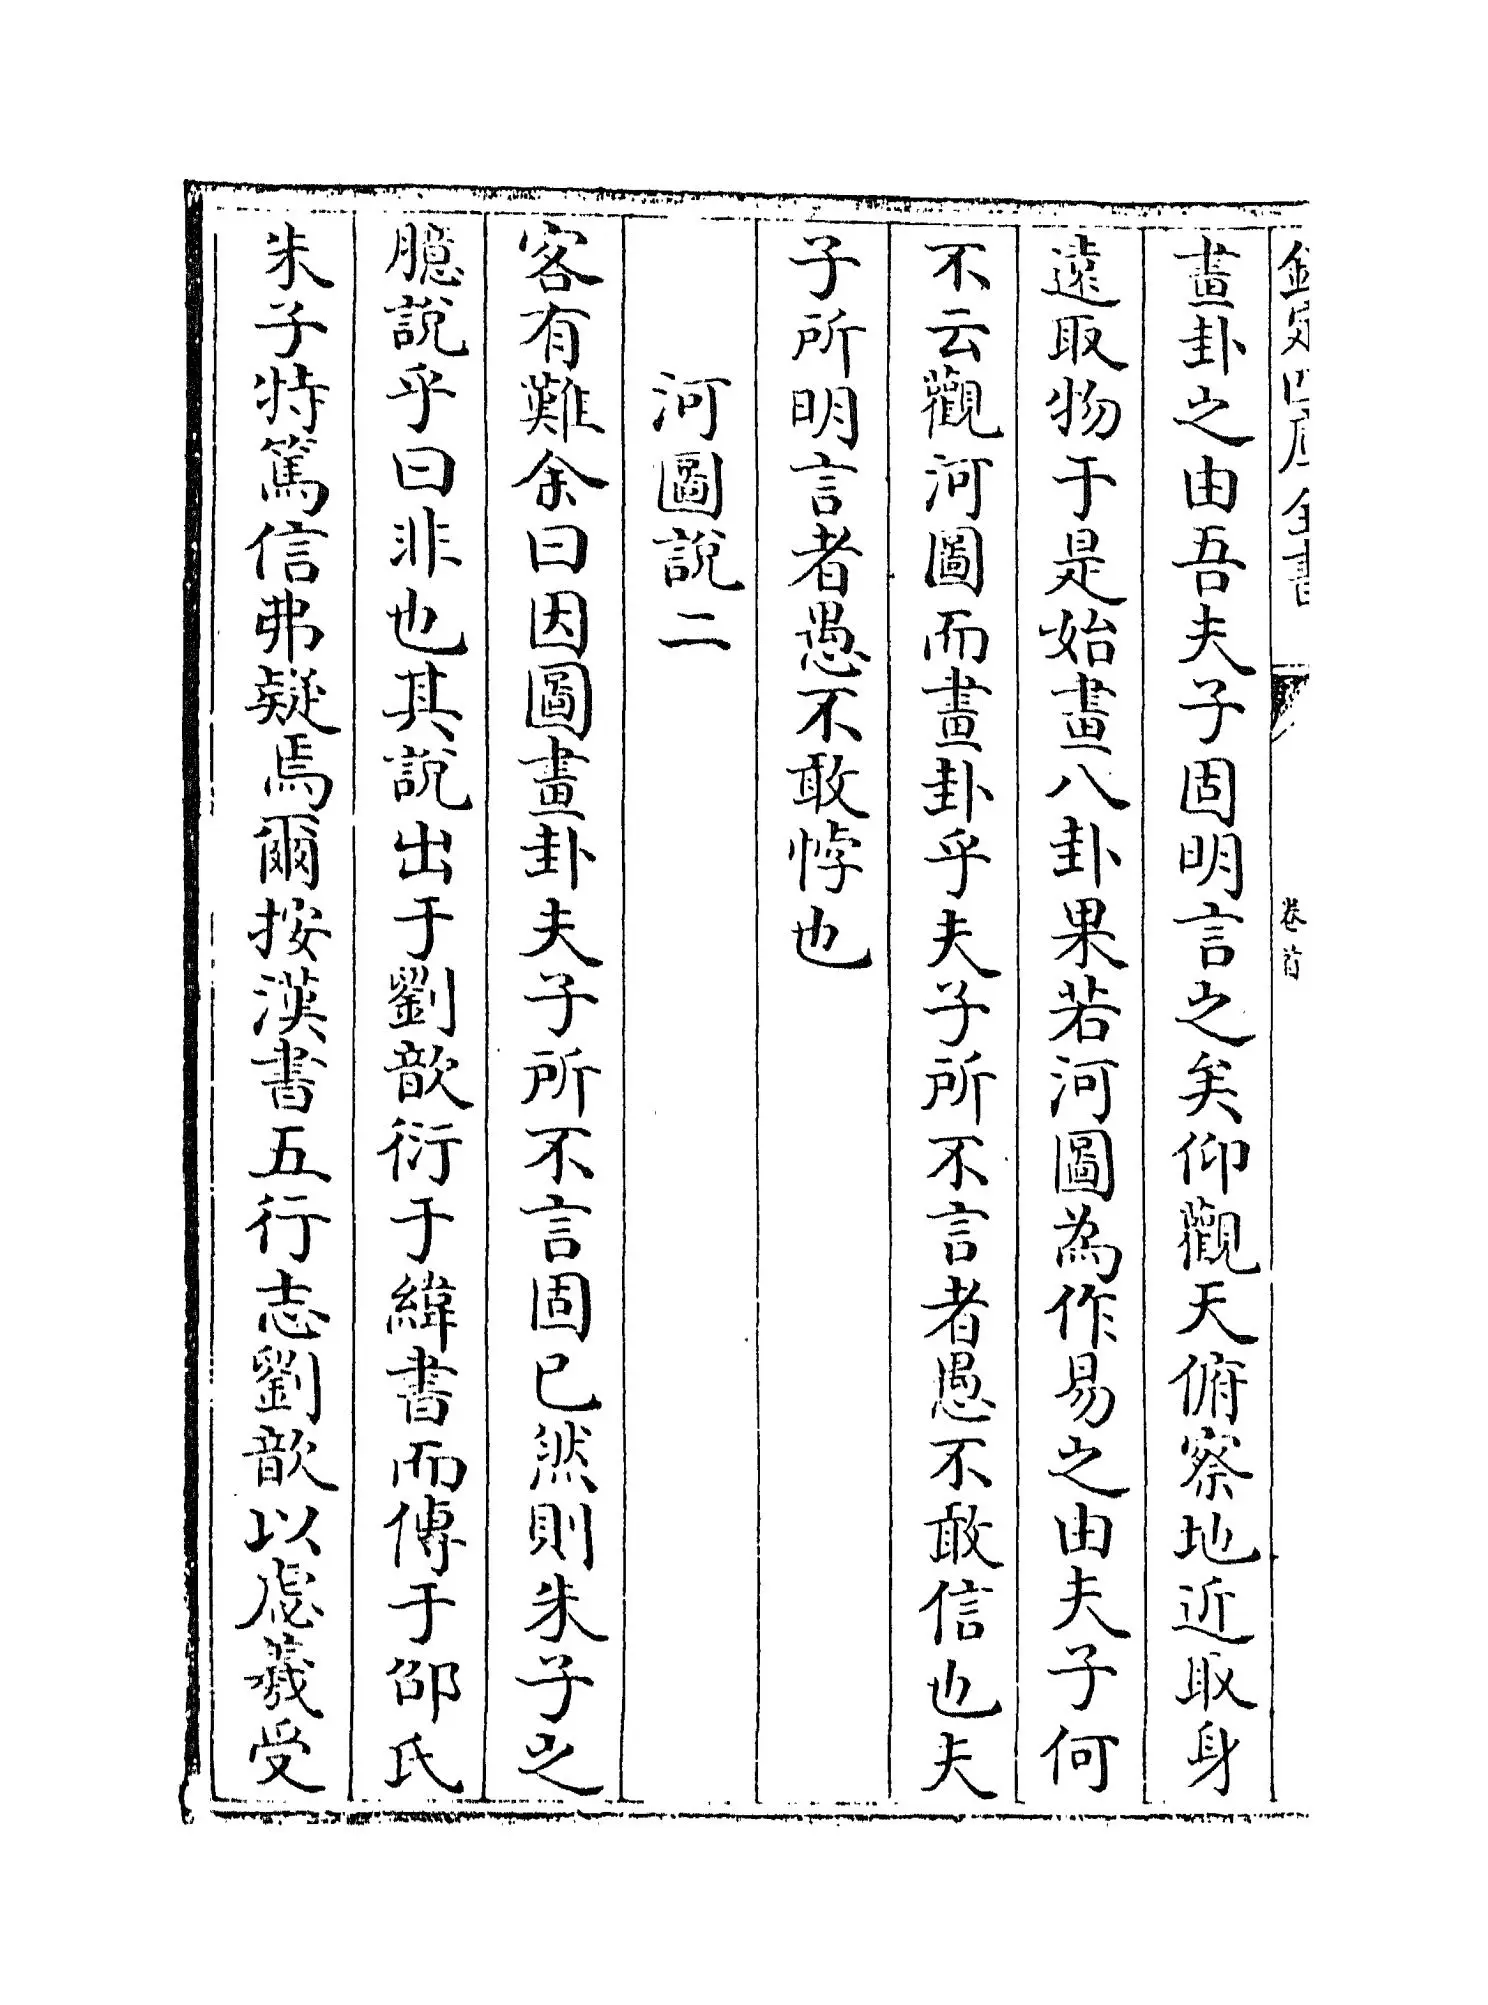 欽定四庫全書
卷首
畫卦之由吾夫子固明言之矣仰觀天俯察地近取身
遠取物于是始畫八卦果若河圖為作易之由夫子何
不云觀河圖而畫卦乎夫子所不言者愚不敢信也夫
子所明言者愚不敢悖也
河圖說二
客有難余曰因圖畫卦夫子所不言固已然則朱子之
臆說乎曰非也其說出于劉歆衍于緯書而傳于邵氏
朱子特篤信弗疑焉爾按漢書五行志劉歆以虙羲受